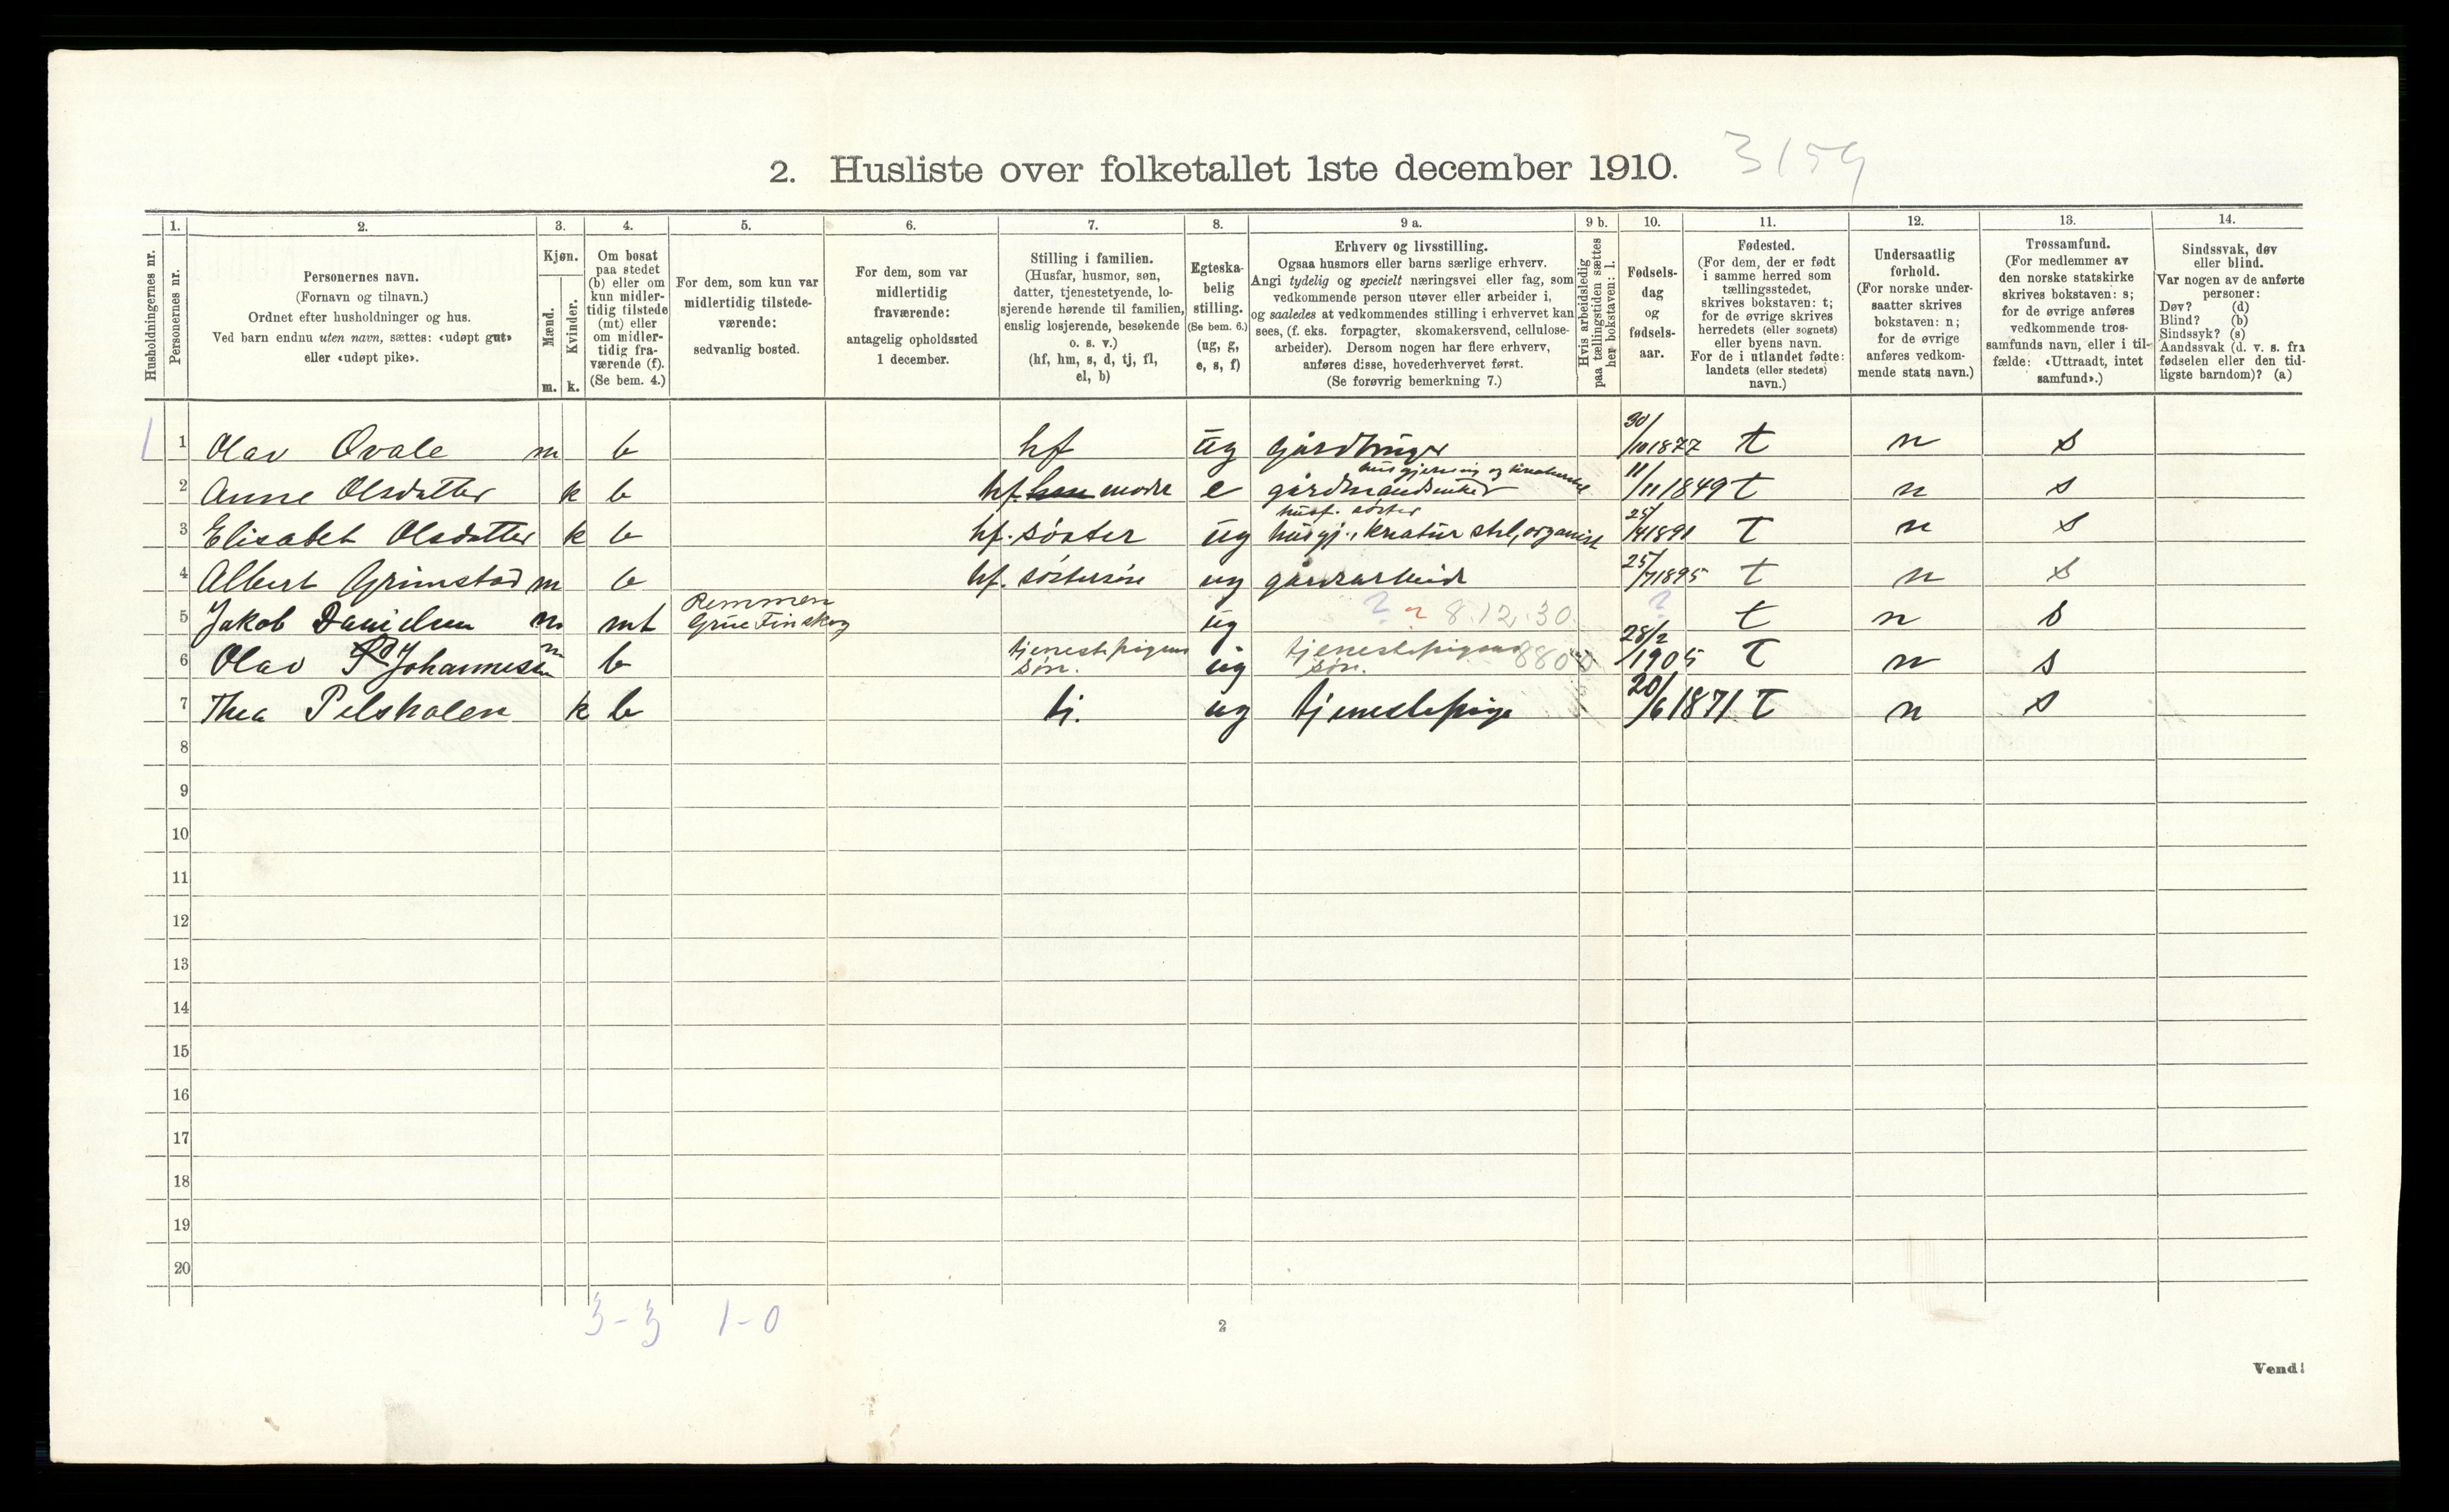 2. Husliste over folketallet 1ste december 1910. 3159
Husholdningernes nr.
1.
Personernes nr.
2.
Personernes navn.
(Fornavn og tilnavn.)
Ordnet efter husholdninger og hus.
Ved barn endnu uten navn, sættes: «udøpt gut»
eller «udøpt pike».
3.
Kjøn.
Mænd.
m.
Kvinder.
k.
4.
Om bosat
paa stedet
(b) eller om
kun midler-
tidig tilstede
(mt) eller
om midler-
tidig fra-
værende (f).
(Se bem. 4.)
5.
For dem, som kun var
midlertidig tilstede-
værende:
sedvanlig bosted.
6.
For dem, som var
midlertidig
fraværende:
antagelig opholdssted
1 december.
7.
Stilling i familien.
(Husfar, husmor, søn,
datter, tjenestetyende, lo-
sjerende hørende til familien,
enslig losjerende, besøkende
o. s. v.)
(hf, hm, s, d, tj, fl,
el, b)
8.
Egteska-
belig
stilling.
(Se bem. 6.)
(ug, g,
e, s, f)
9 a.
Erhverv og livsstilling.
Ogsaa husmors eller barns særlige erhverv.
Angi tydelig og specielt næringsvei eller fag, som
vedkommende person utøver eller arbeider i,
og saaledes at vedkommendes stilling i erhvervet kan
sees, (f. eks. forpagter, skomakersvend, cellulose-
arbeider). Dersom nogen har flere erhverv,
anføres disse, hovederhvervet først.
(Se forøvrig bemerkning 7.)
9 b.
Hvis arbeidsledig
paa tællingstiden sættes
her bokstaven: l.
10.
Fødsels-
dag
og
fødsels-
aar.
11.
Fødested.
(For dem, der er født
i samme herred som
tællingsstedet,
skrives bokstaven: t;
for de øvrige skrives
herredets (eller sognets)
eller byens navn.
For de i utlandet fødte:
landets (eller stedets)
navn.)
12.
Undersaatlig
forhold.
(For norske under-
saatter skrives
bokstaven: n;
for de øvrige
anføres vedkom-
mende stats navn.)
13.
Trossamfund.
(For medlemmer av
den norske statskirke
skrives bokstaven: s;
for de øvrige anføres
vedkommende tros-
samfunds navn, eller i til-
fælde: «Uttraadt, intet
samfund».)
14.
Sindssvak, døv
eller blind.
Var nogen av de anførte
personer:
Døv? (d)
Blind? (b)
Sindssyk? (s)
Aandssvak (d. v. s. fra
fødselen eller den tid-
ligste barndom)? (a)
1 1 Olav Ovale m b hf ug gårdbruger 30/10 1877 t n s
2 Anne Olsdatter k b hf. moder e husgjerning og gårdmandsenke 11/11 1849 t n s
3 Elisabet Olsdatter k b hf. søster ug husf. søster husgj., kreatur stel, organist 25/4 1891 t n s
4 Albert Grimstad m b hf. søstersøn ug gårdsarbeid 25/7 1895 t n s
5 Jakob Danielsen m mt Remmen Grue Finskog ug ? ? 8.12.30 ? t n s
6 Olav Johannesen m b tjenestepigens søn. ug tjenestepigens søn. 8800 28/2 1905 t n s
7 Thea Pelskolen k b tj. ug tjenestepige 20/6 1871 t n s
8
9
10
11
12
13
14
15
16
17
18
19
20
3-3 1-0
2
Vend!